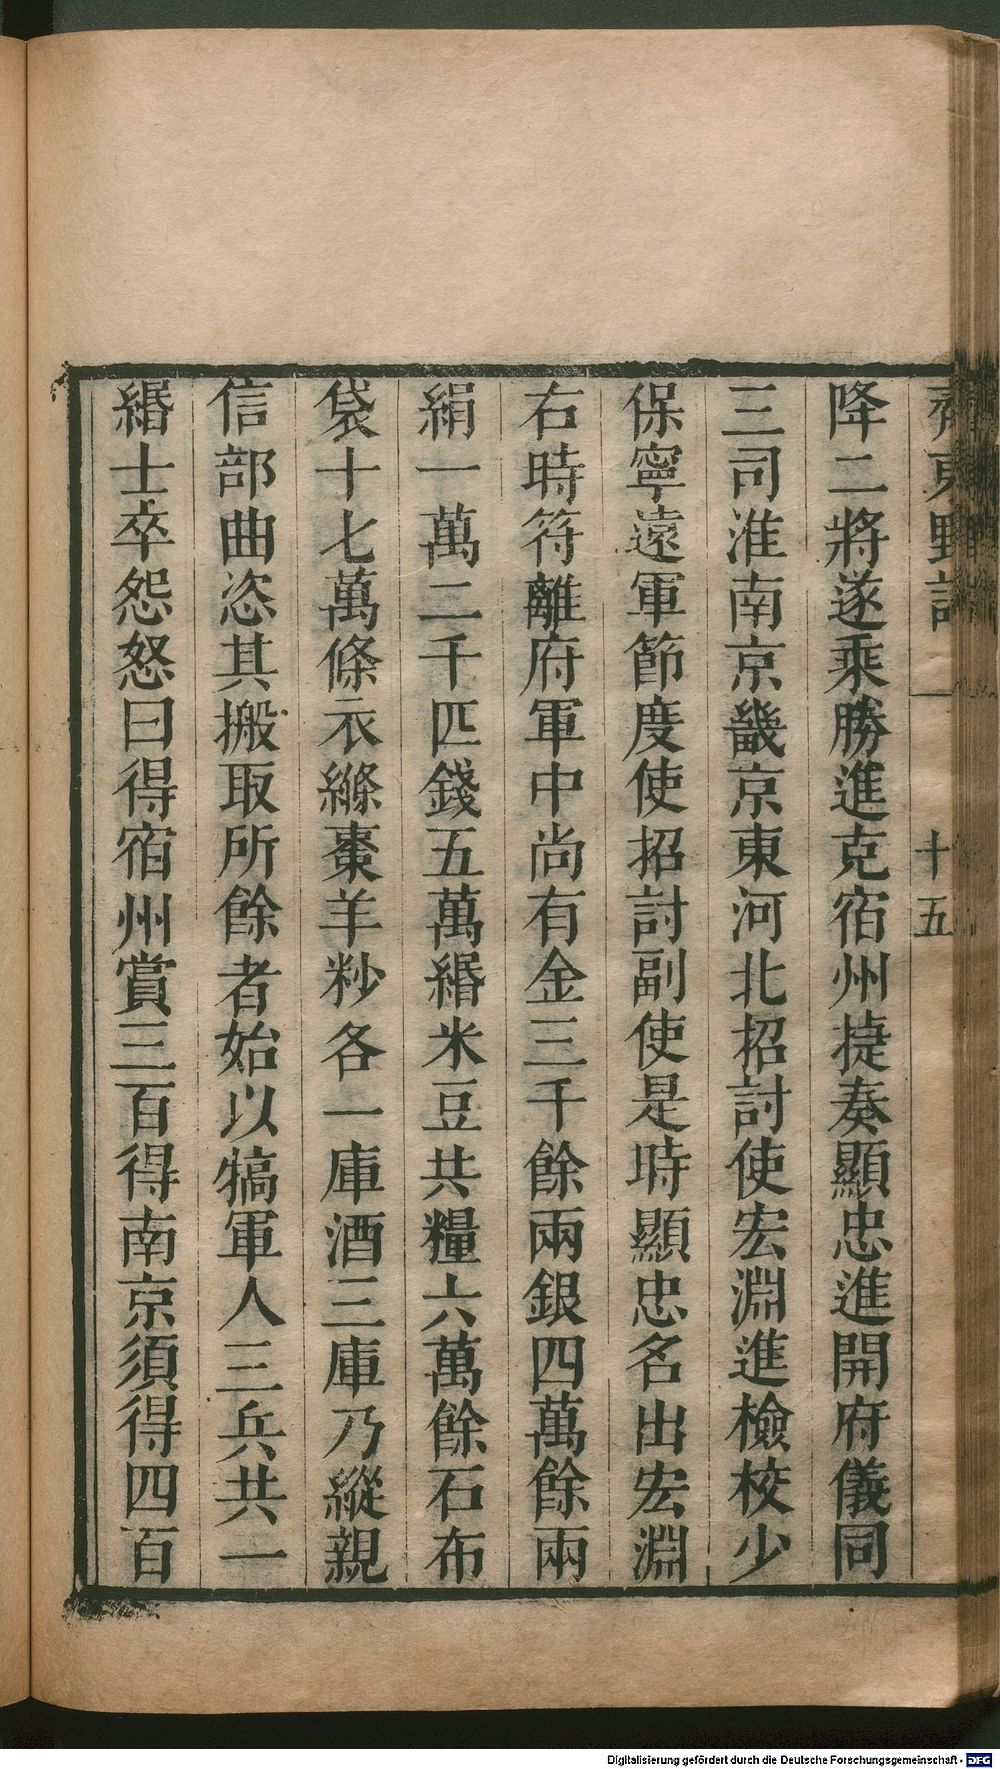 齊東野語一 十五
降二將遂乘勝進克宿州捷奏顯忠進開府儀同
三司淮南京畿京東河北招討使宏淵進檢校少
保寧遠軍節度使招討副使是時顯忠名出宏淵
右時符離府軍中尚有金三千餘兩銀四萬餘兩
絹一萬二千匹錢五萬緡米豆共糧六萬餘石布
袋十七萬條衣縧棗羊炒各一庫酒三庫乃縱親
信部曲恣其搬取所餘者始以犒軍人三兵共一
緡士卒怨怒曰得宿州賞三百得南京須得四百
Digitalisierung gefördert durch die Deutsche Forschungsgemeinschaft - DFG